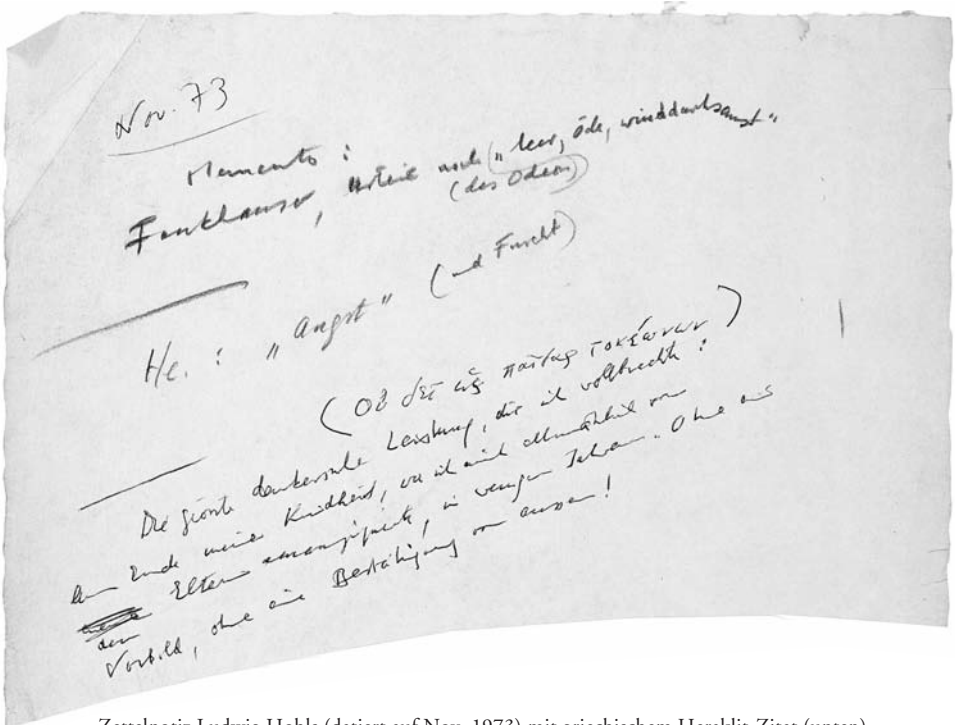 Nov. 73
Memento :
Fankhauser, Urteil nach („ leer, öde, winddurchsaust“
(des Odeon)
He. : „ Angst “ (und Furcht)
(Οὐ δεῖ ὡς παῖδας τοκεώνων)
Die grösste denkerische Leistung, die ich vollbrachte :
am Ende meiner Kindheit, wo ich mich allmählich von
den Eltern emanzipierte, in wenigen Jahren. Ohne ein
Vorbild, ohne eine Bestätigung von aussen !
Zettelnotiz Ludwig Hohls (datiert auf Nov. 1973) mit griechischem Heraklit-Zitat (unten)